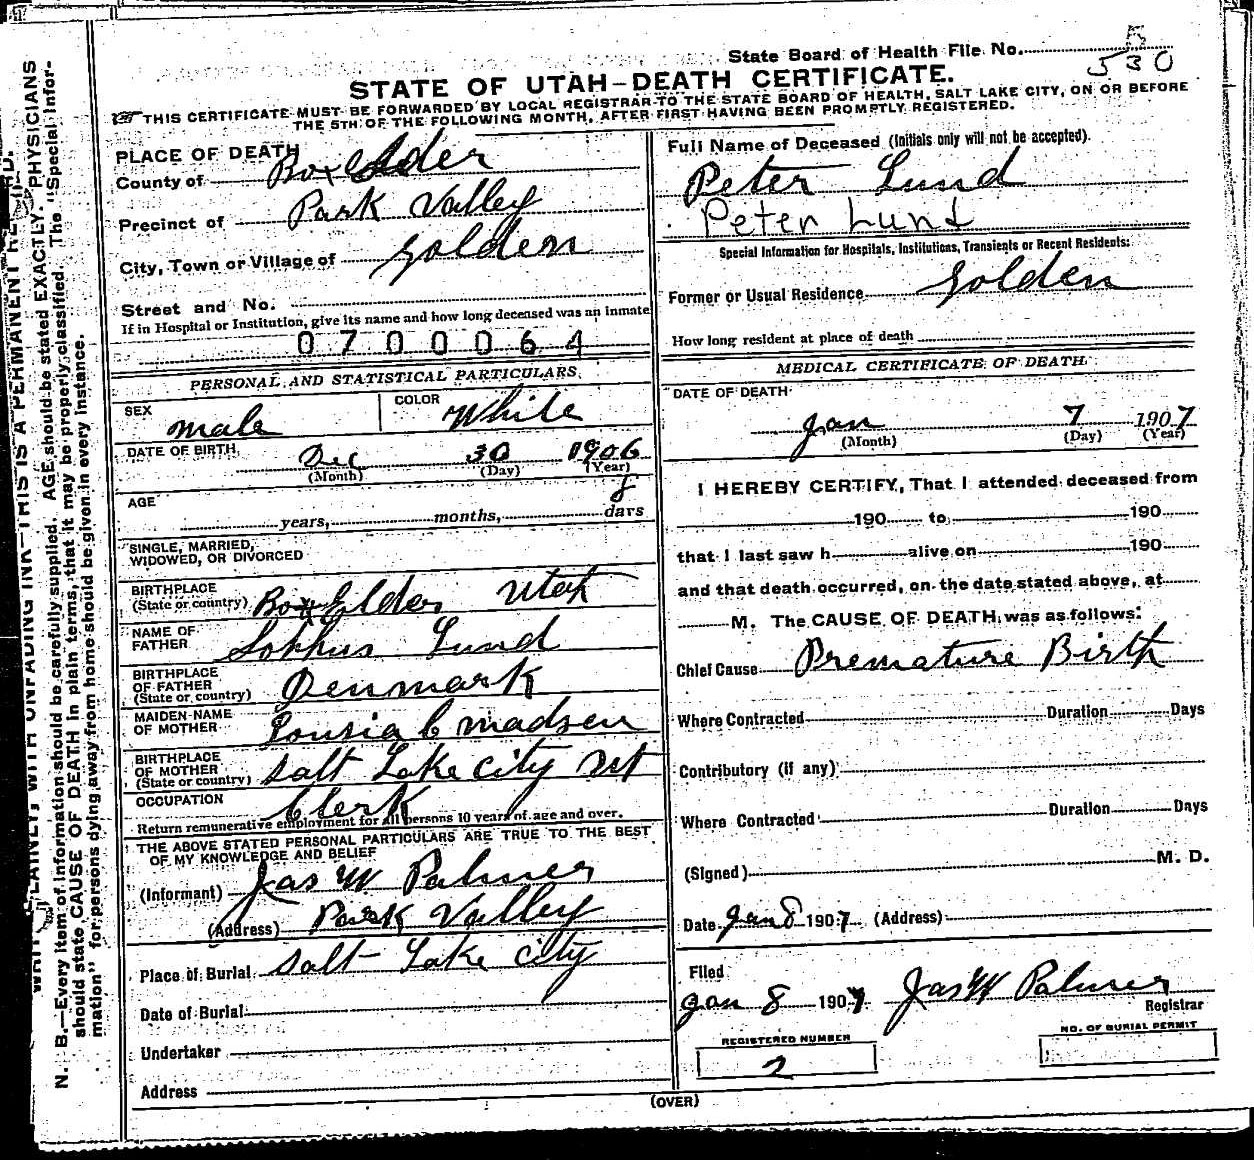 State Board of Health File No. 5
530
STATE OF UTAH–DEATH CERTIFICATE.
THIS CERTIFICATE MUST BE FORWARDED BY LOCAL REGISTRAR TO THE STATE BOARD OF HEALTH, SALT LAKE CITY, ON OR BEFORE
THE 5TH OF THE FOLLOWING MONTH, AFTER FIRST HAVING BEEN PROMPTLY REGISTERED.
PLACE OF DEATH
County of Box Elder
Precinct of Park Valley
City, Town or Village of Golden
Street and No.
If in Hospital or Institution, give its name and how long deceased was an Inmate
0700064
PERSONAL AND STATISTICAL PARTICULARS
SEX male COLOR White
DATE OF BIRTH Dec 30 1906
(Month) (Day) (Year)
AGE years, months, 8 days
SINGLE, MARRIED,
WIDOWED, OR DIVORCED
BIRTHPLACE
(State or country) Box Elder Utah
NAME OF
FATHER Sophus Lund
BIRTHPLACE
OF FATHER
(State or country) Denmark
MAIDEN NAME
OF MOTHER Lousia C Madsen
BIRTHPLACE
OF MOTHER
(State or country) Salt Lake City Ut
OCCUPATION Clerk
Return remunerative employment for all persons 10 years of age and over.
THE ABOVE STATED PERSONAL PARTICULARS ARE TRUE TO THE BEST
OF MY KNOWLEDGE AND BELIEF
(Informant) Jas W Palmer
(Address) Park Valley
Place of Burial Salt Lake City
Date of Burial
Undertaker
Address
Full Name of Deceased (Initials only will not be accepted).
Peter Lund
Peter Lund
Special Information for Hospitals, Institutions, Transients or Recent Residents:
Former or Usual Residence Golden
How long resident at place of death
MEDICAL CERTIFICATE OF DEATH
DATE OF DEATH
Jan 7 1907
(Month) (Day) (Year)
I HEREBY CERTIFY, That I attended deceased from
190 to 190
that I last saw h alive on 190
and that death occurred, on the date stated above, at
M. The CAUSE OF DEATH was as follows:
Chief Cause Premature Birth
Where Contracted Duration Days
Contributory (if any)
Where Contracted Duration Days
(Signed) M. D.
Date Jan 8 1907 (Address)
Filed
Jan 8 1907 Jas W Palmer
Registrar
REGISTERED NUMBER
2
NO. OF BURIAL PERMIT
(OVER)
PLAINLY, WITH UNFADING INK—THIS IS A PERMANENT
N. B.—Every item of information should be carefully supplied. AGE should be stated EXACTLY. PHYSICIANS
should state CAUSE OF DEATH in plain terms, that it may be properly classified. The "Special Infor-
mation" for persons dying away from home should be given in every instance.